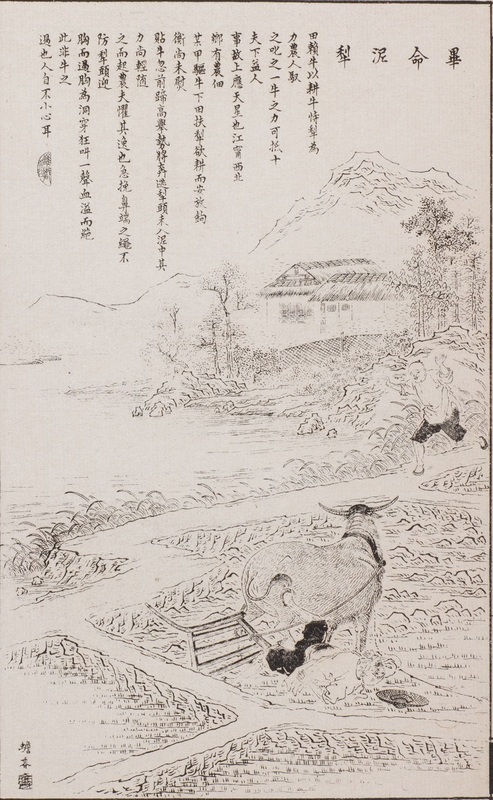 畢命泥犁
田賴牛以耕牛恃犁為
力農人馭
之叱之一牛之力可抵十
夫下益人
事故上應天星也江甯西北
鄉有農佃
某甲驅牛下田扶犁欲耕而安放鉤
衡尚未熨
貼牛忽前蹄高舉勢將奔逸犁頭未入泥中其
力尚輕隨
之而起農夫懼其逸也急挽鼻端之繩不
防犁頭迎
胸而過胸為洞穿狂叫一聲血溢而斃
此非牛之
過也人自不小心耳
蟾香